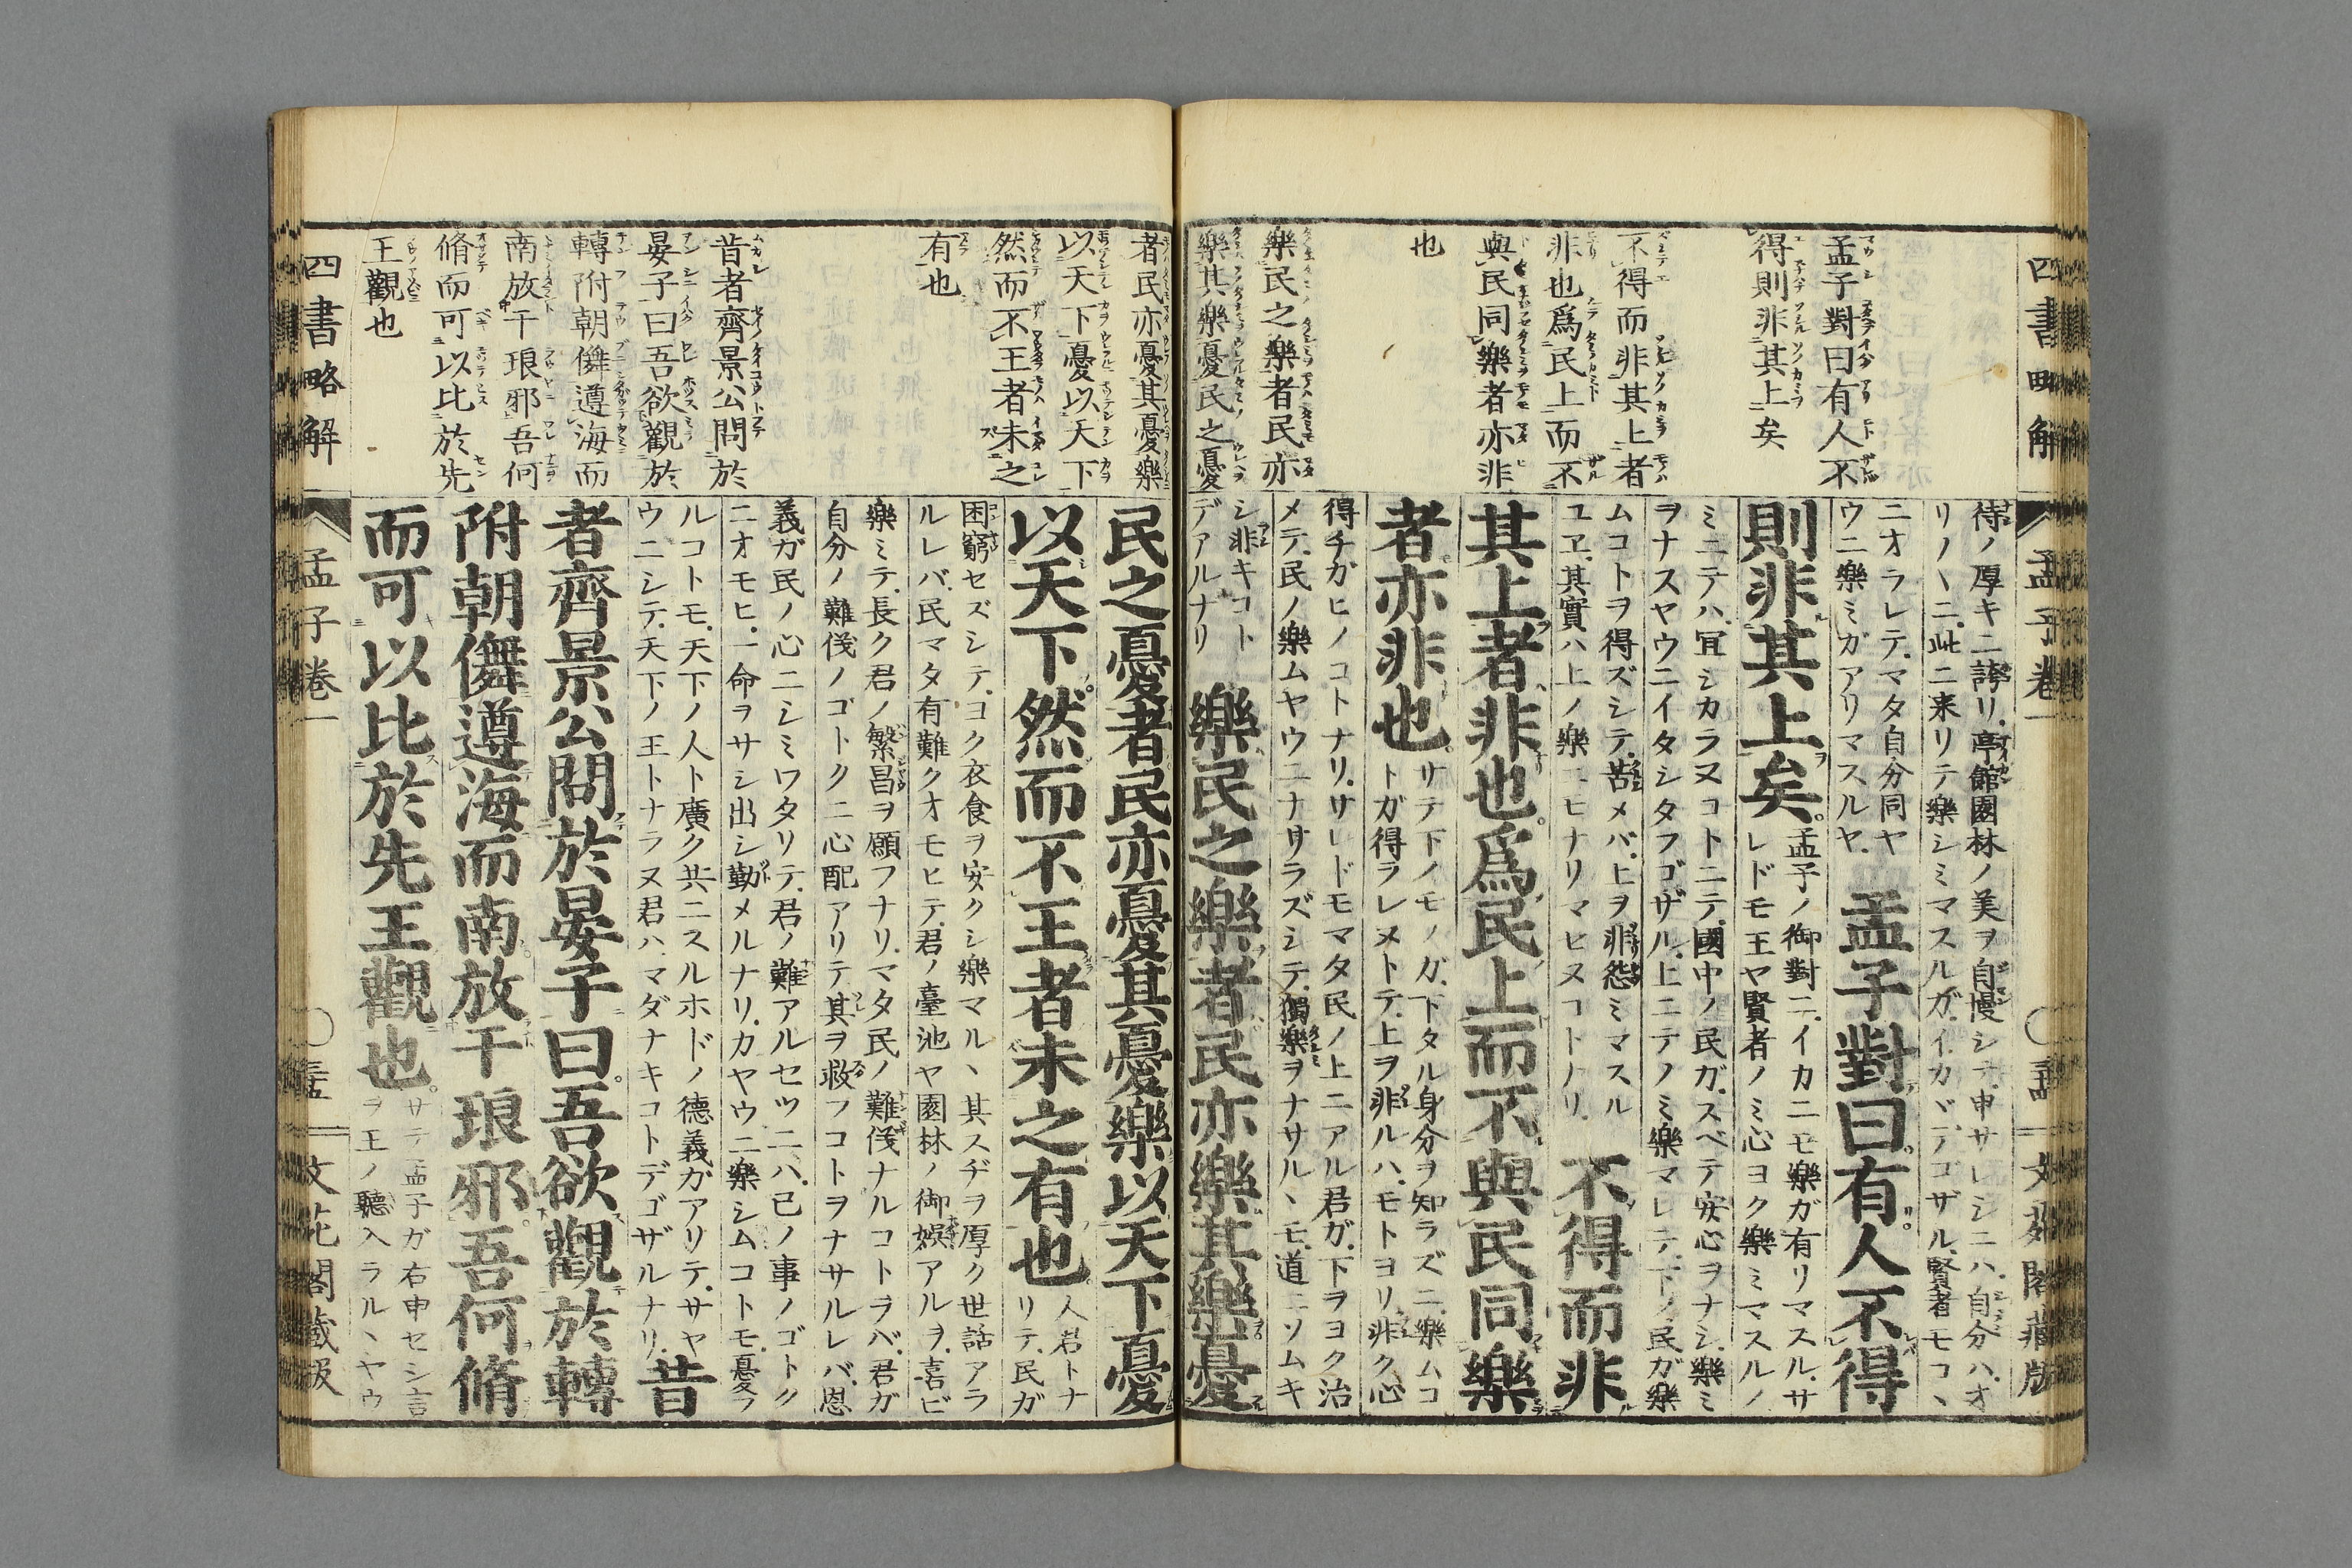 四書略解
孟子卷一
文花閣藏版
孟子對曰有人不
得則非其上矣
不得而非其上者
非也爲民上而不
與民同樂者亦非
也
樂民之樂者民亦
樂其樂憂民之憂
待ノ厚キニ誇リ亭館園林ノ美ヲ自慢シテ申サレシニハ自分ハオ
リノヽニ此ニ来リテ樂シミマスルガイカヾデゴザル賢者モコヽ
ニオラレテマタ自分同ヤ
ウニ樂ミガアリマスルヤ
孟子對曰有人不得
則非其上矣
孟子ノ御對ニイカニモ樂ガ有リマスルサ
レドモ王ヤ賢者ノミ心ヨク樂ミマスルノ
ミニテハ冝シカラヌコトニテ國中ノ民ガスベテ安心ヲナシ樂ミ
ヲナスヤウニイタシタフゴザル上ニテノミ樂マレテ下ノ民ガ樂
ムコトヲ得ズシテ苦メバ上ヲ非怨ミマスル
ユヱ其實ハ上ノ樂ニモナリマヒヌコトナリ
不得而非
其上者非也爲民上而不與民同樂
者亦非也
サテ下ノモノガ下タル身分ヲ知ラズニ樂ムコ
トガ得ラレヌトテ上ヲ非ルハモトヨリ非ク心
得チガヒノコトナリサレドモマタ民ノ上ニアル君ガ下ヲヨク治
メテ民ノ樂ムヤウニナサラズシテ獨樂ヲナサルヽモ道ニソムキ
シ非キコト
デアルナリ
樂民之樂者民亦樂其樂憂
者民亦憂其憂樂
以天下憂以天下
然而不王者未之
有也
昔者齊景公問於
晏子曰吾欲觀於
轉附朝儛遵海而
南放于琅邪吾何
脩而可以比於先
王觀也
民之憂者民亦憂其憂樂以天下憂
以天下然而不王者未之有也
人君トナ
リテ民ガ
困窮セズシテコク衣食ヲ安クシ樂マルヽ其スヂヲ厚ク世話アラ
ルレバ民マタ有難クオモヒテ君ノ臺池ヤ園林ノ御娯アルヲ喜ビ
樂ミテ長ク君ノ繁昌ヲ願フナリマタ民ノ難俴ナルコトヲバ君ガ
自分ノ難俴ノゴトクニ心配アリテ其ヲ救フコトヲナサルレバ恩
義ガ民ノ心ニシミワタリテ君ノ難アルセツニハ已ノ事ノゴトク
ニオモヒ一命ヲサシ出シ勤メルナリカヤウニ樂シムコトモ憂フ
ルコトモ天下ノ人ト廣ク共ニスルホドノ德義ガアリテサヤ
ウニシテ天下ノ王トナラヌ君ハマダナキコトデゴザルナリ
昔
者齊景公問於晏子曰吾欲觀於轉
附朝儛遵海而南放于琅邪吾何脩
而可以比於先王觀也
サテ孟子ガ右申セシ言
ヲ王ノ聽入ラルヽヤウ
四書略解
孟子卷一
文花閣藏版